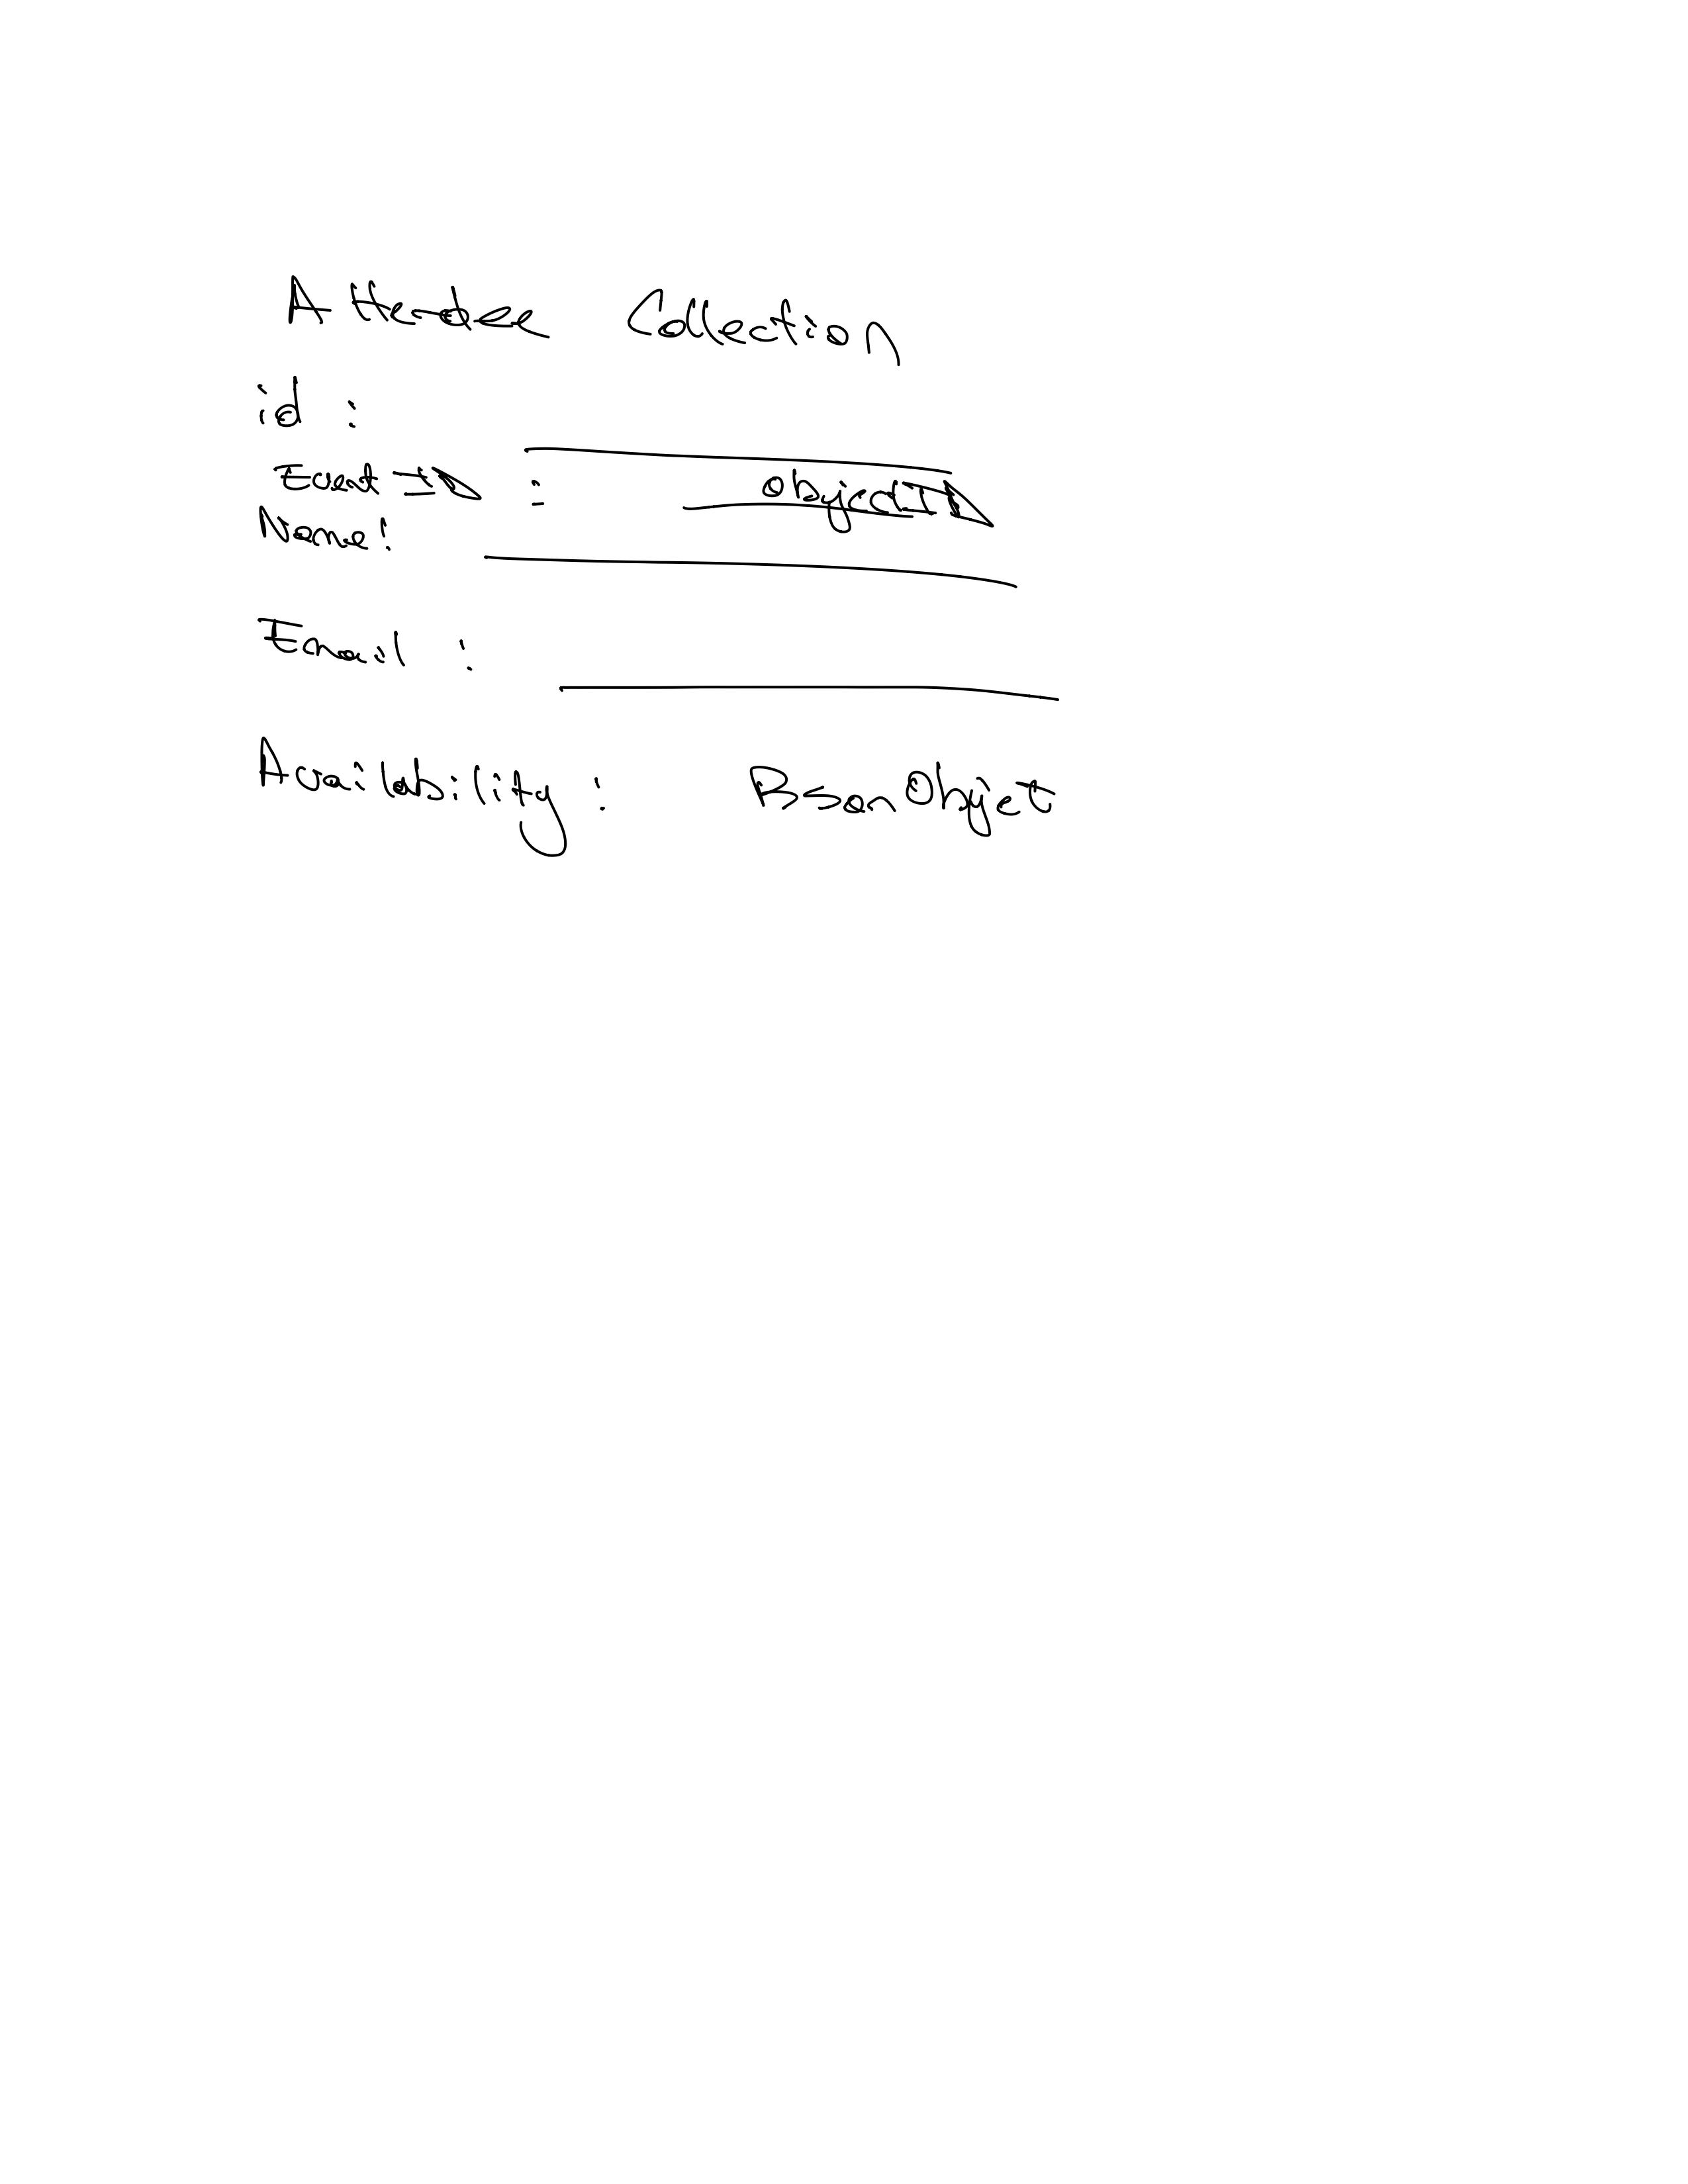 Attendee Collection
id :
Event ID : ObjectID
Name :
Email :
Availability : BsonObject